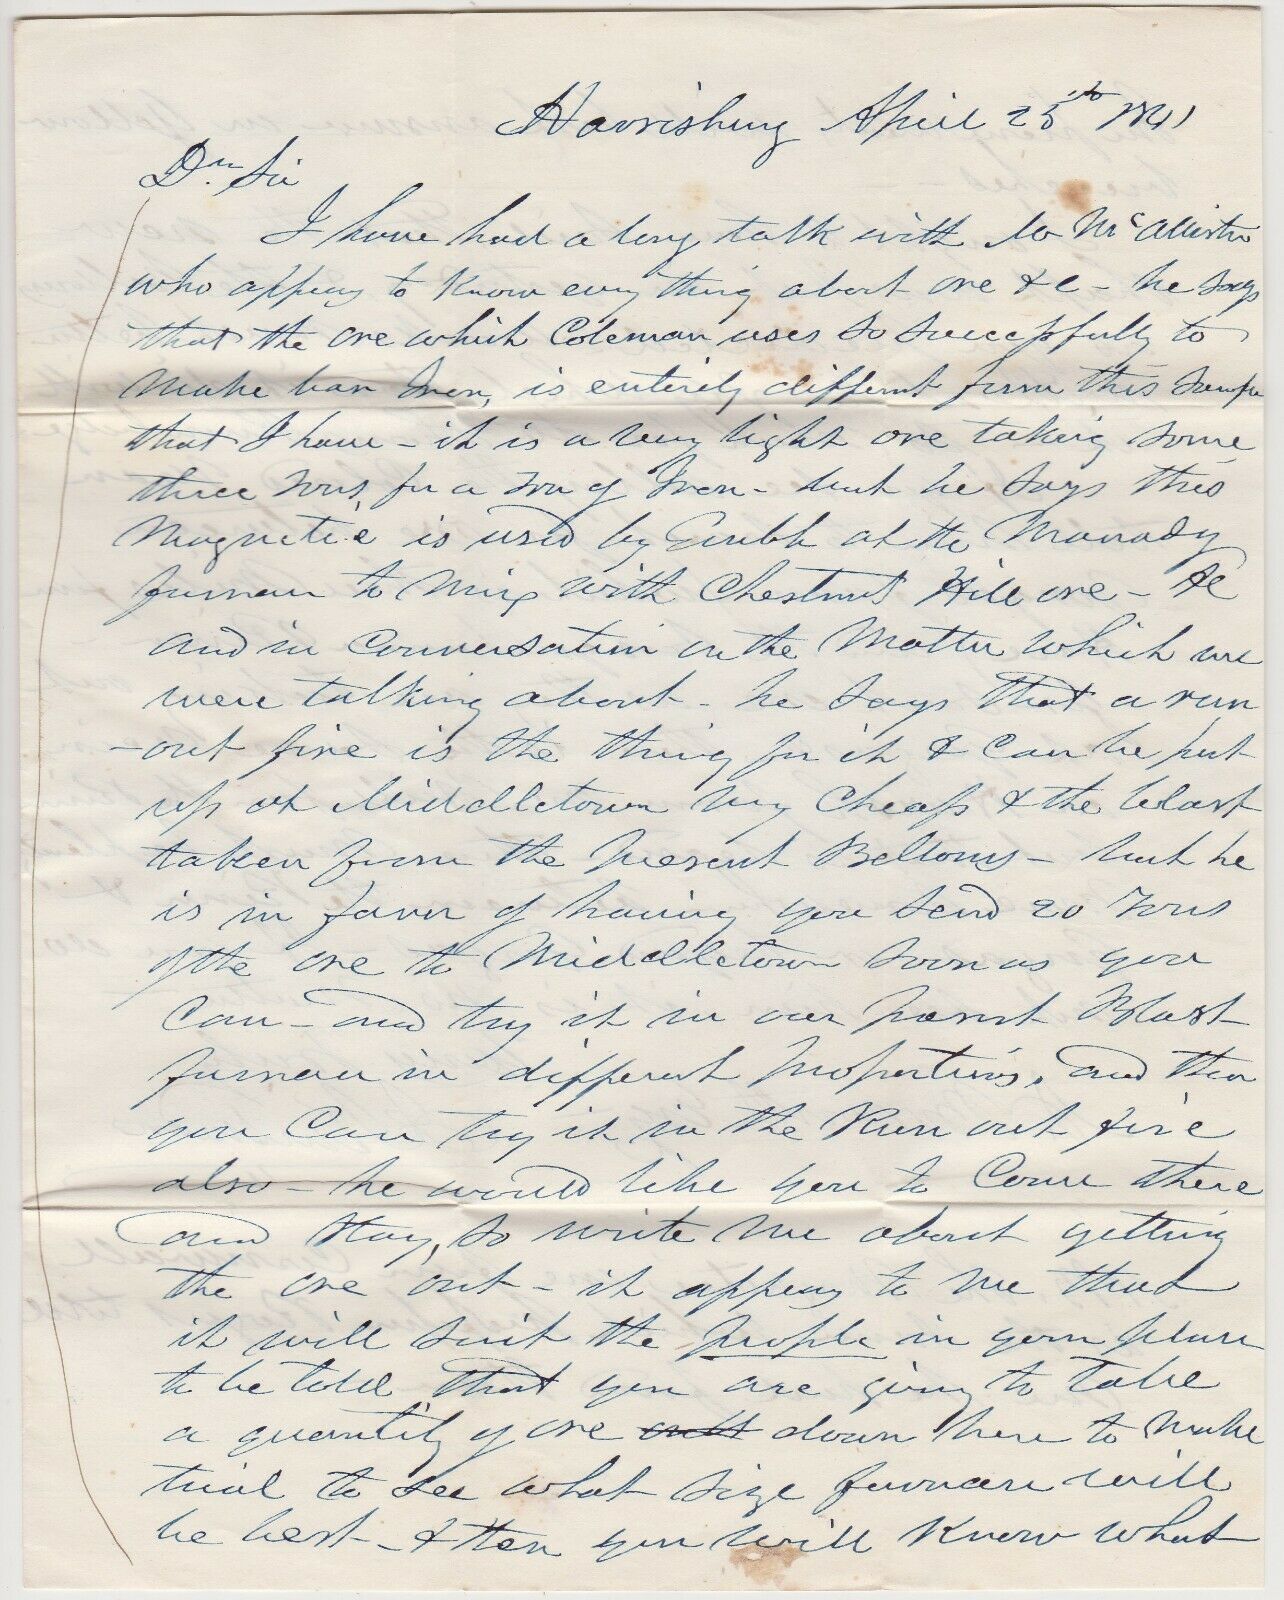 Harrisburg April 25th 1841
Dr. Sir
I have had a long talk with Mr McAllister
who appears to know every thing about ore &c - he says
that the ore which Coleman uses so successfully to
make bar Iron, is entirely different from this
that I have - it is a very light ore taking some
three tons for a ton of Iron - but he says this
Magnetic is used by Grubb at the Manady
furnace to mix with Chestnut Hill ore - &c
and in conversation on the matter which we
were talking about - he says that a run
-out fire is the thing for it & can be put
up at Middletown very cheap & the blast
taken from the present Bellows - but he
is in favor of having you send 20 Tons
of the ore to Middletown soon as you
can - and try it in our Blast
furnace in different proportions, and then
you can try it in the Run out fire
also - he would like you to come there
and stay, so write me about getting
the ore out - it appears to me that
it will suit the people in your place
to be told that you are going to take
a quantity of ore down here to make
trial to see what size furnace will
be best - & then you will know what